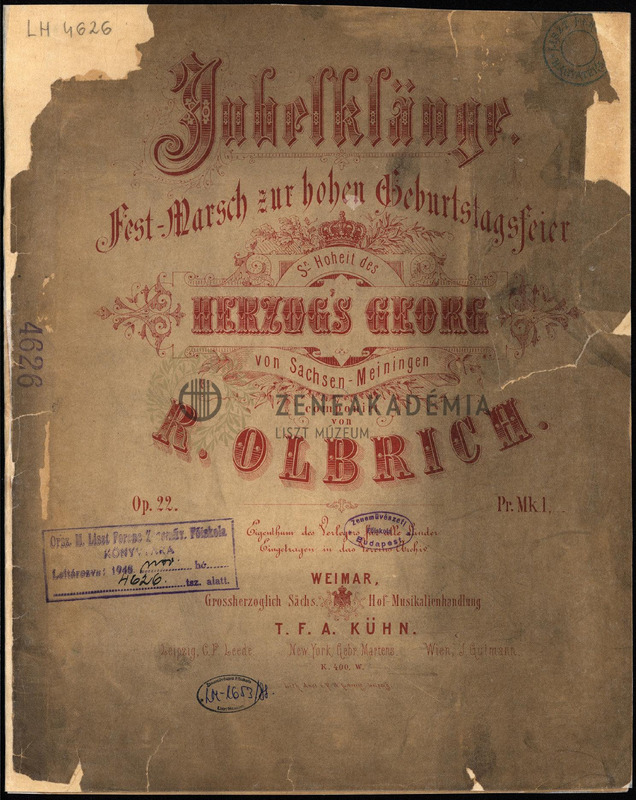 LH 4626
Jubelklänge.
Fest-Marsch zur hohen Geburtstagsfeier
Sr. Hoheit des
HERZOGS GEORG
von Sachsen-Meiningen
ZENEAKADÉMIA
LISZT MÚZEUM
von
R. OLBRICH.
Op. 22.
Pr. Mk 1,
Eigenthum des Verlegers für alle Länder
Eingetragen in das Vereins Archiv
Zeneművészeti Főiskola
Budapest
Orsz. M. Liszt Ferenc Zeneműv. Főiskola
KÖNYVTÁRA
Leltározva: 1948. nov. hó
4626. tsz. alatt.
4626
WEIMAR,
Grossherzoglich Sächs. Hof-Musikalienhandlung
T. F. A. KÜHN.
Leipzig, C. F. Leede New York, Gebr. Martens Wien, J. Gutmann
K. 400. W.
LH-1653/88.